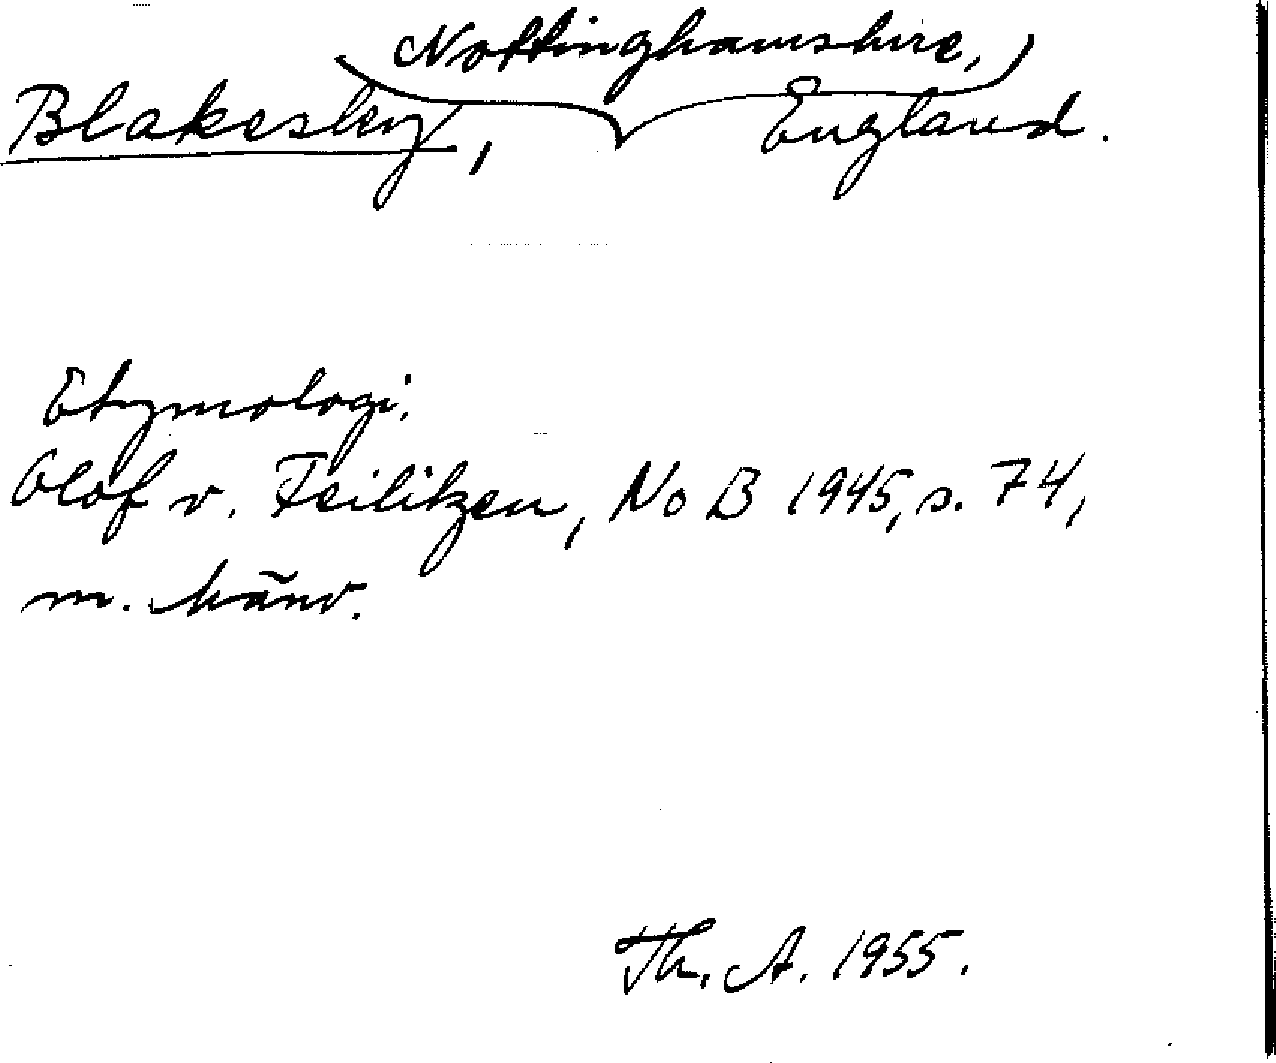 Nottinghamshire,
Blakesley, England.
Etymologi.
Olof v. Feilitzen, NoB 1945, s. 74,
m. hänv.
Th. A. 1955.